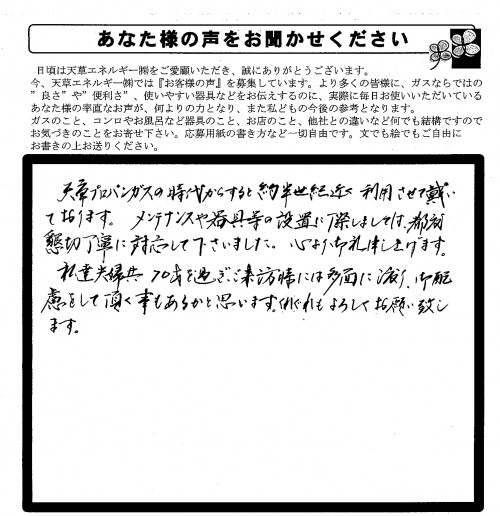 あなた様の声をお聞かせください
日頃は天草エネルギー㈱をご愛顧いただき、誠にありがとうございます。
今、天草エネルギー㈱では『お客様の声』を募集しています。より多くの皆様に、ガスならではの
”良さ”や”便利さ”、使いやすい器具などをお伝えするのに、実際に毎日お使いいただいている
あなた様の率直なお声が、何よりの力となり、また私どもの今後の参考となります。
ガスのこと、コンロやお風呂など器具のこと、お店のこと、他社との違いなど何でも結構ですので
お気づきのことをお寄せ下さい。応募用紙の書き方など一切自由です。文でも絵でもご自由に
お書きの上お送りください。
天草プロパンガスの時代からすると約半世紀近く利用させて戴い
ております。メンテナンスや器具等の設置に際しましては、都度
懇切丁寧に対応して下さいました。心より御礼申し上げます。
私達夫婦共70才を過ぎご来訪時には多面に渡り御配
慮をして頂く事もあるかと思います。何ぐれもよろしくお願い致し
ます。